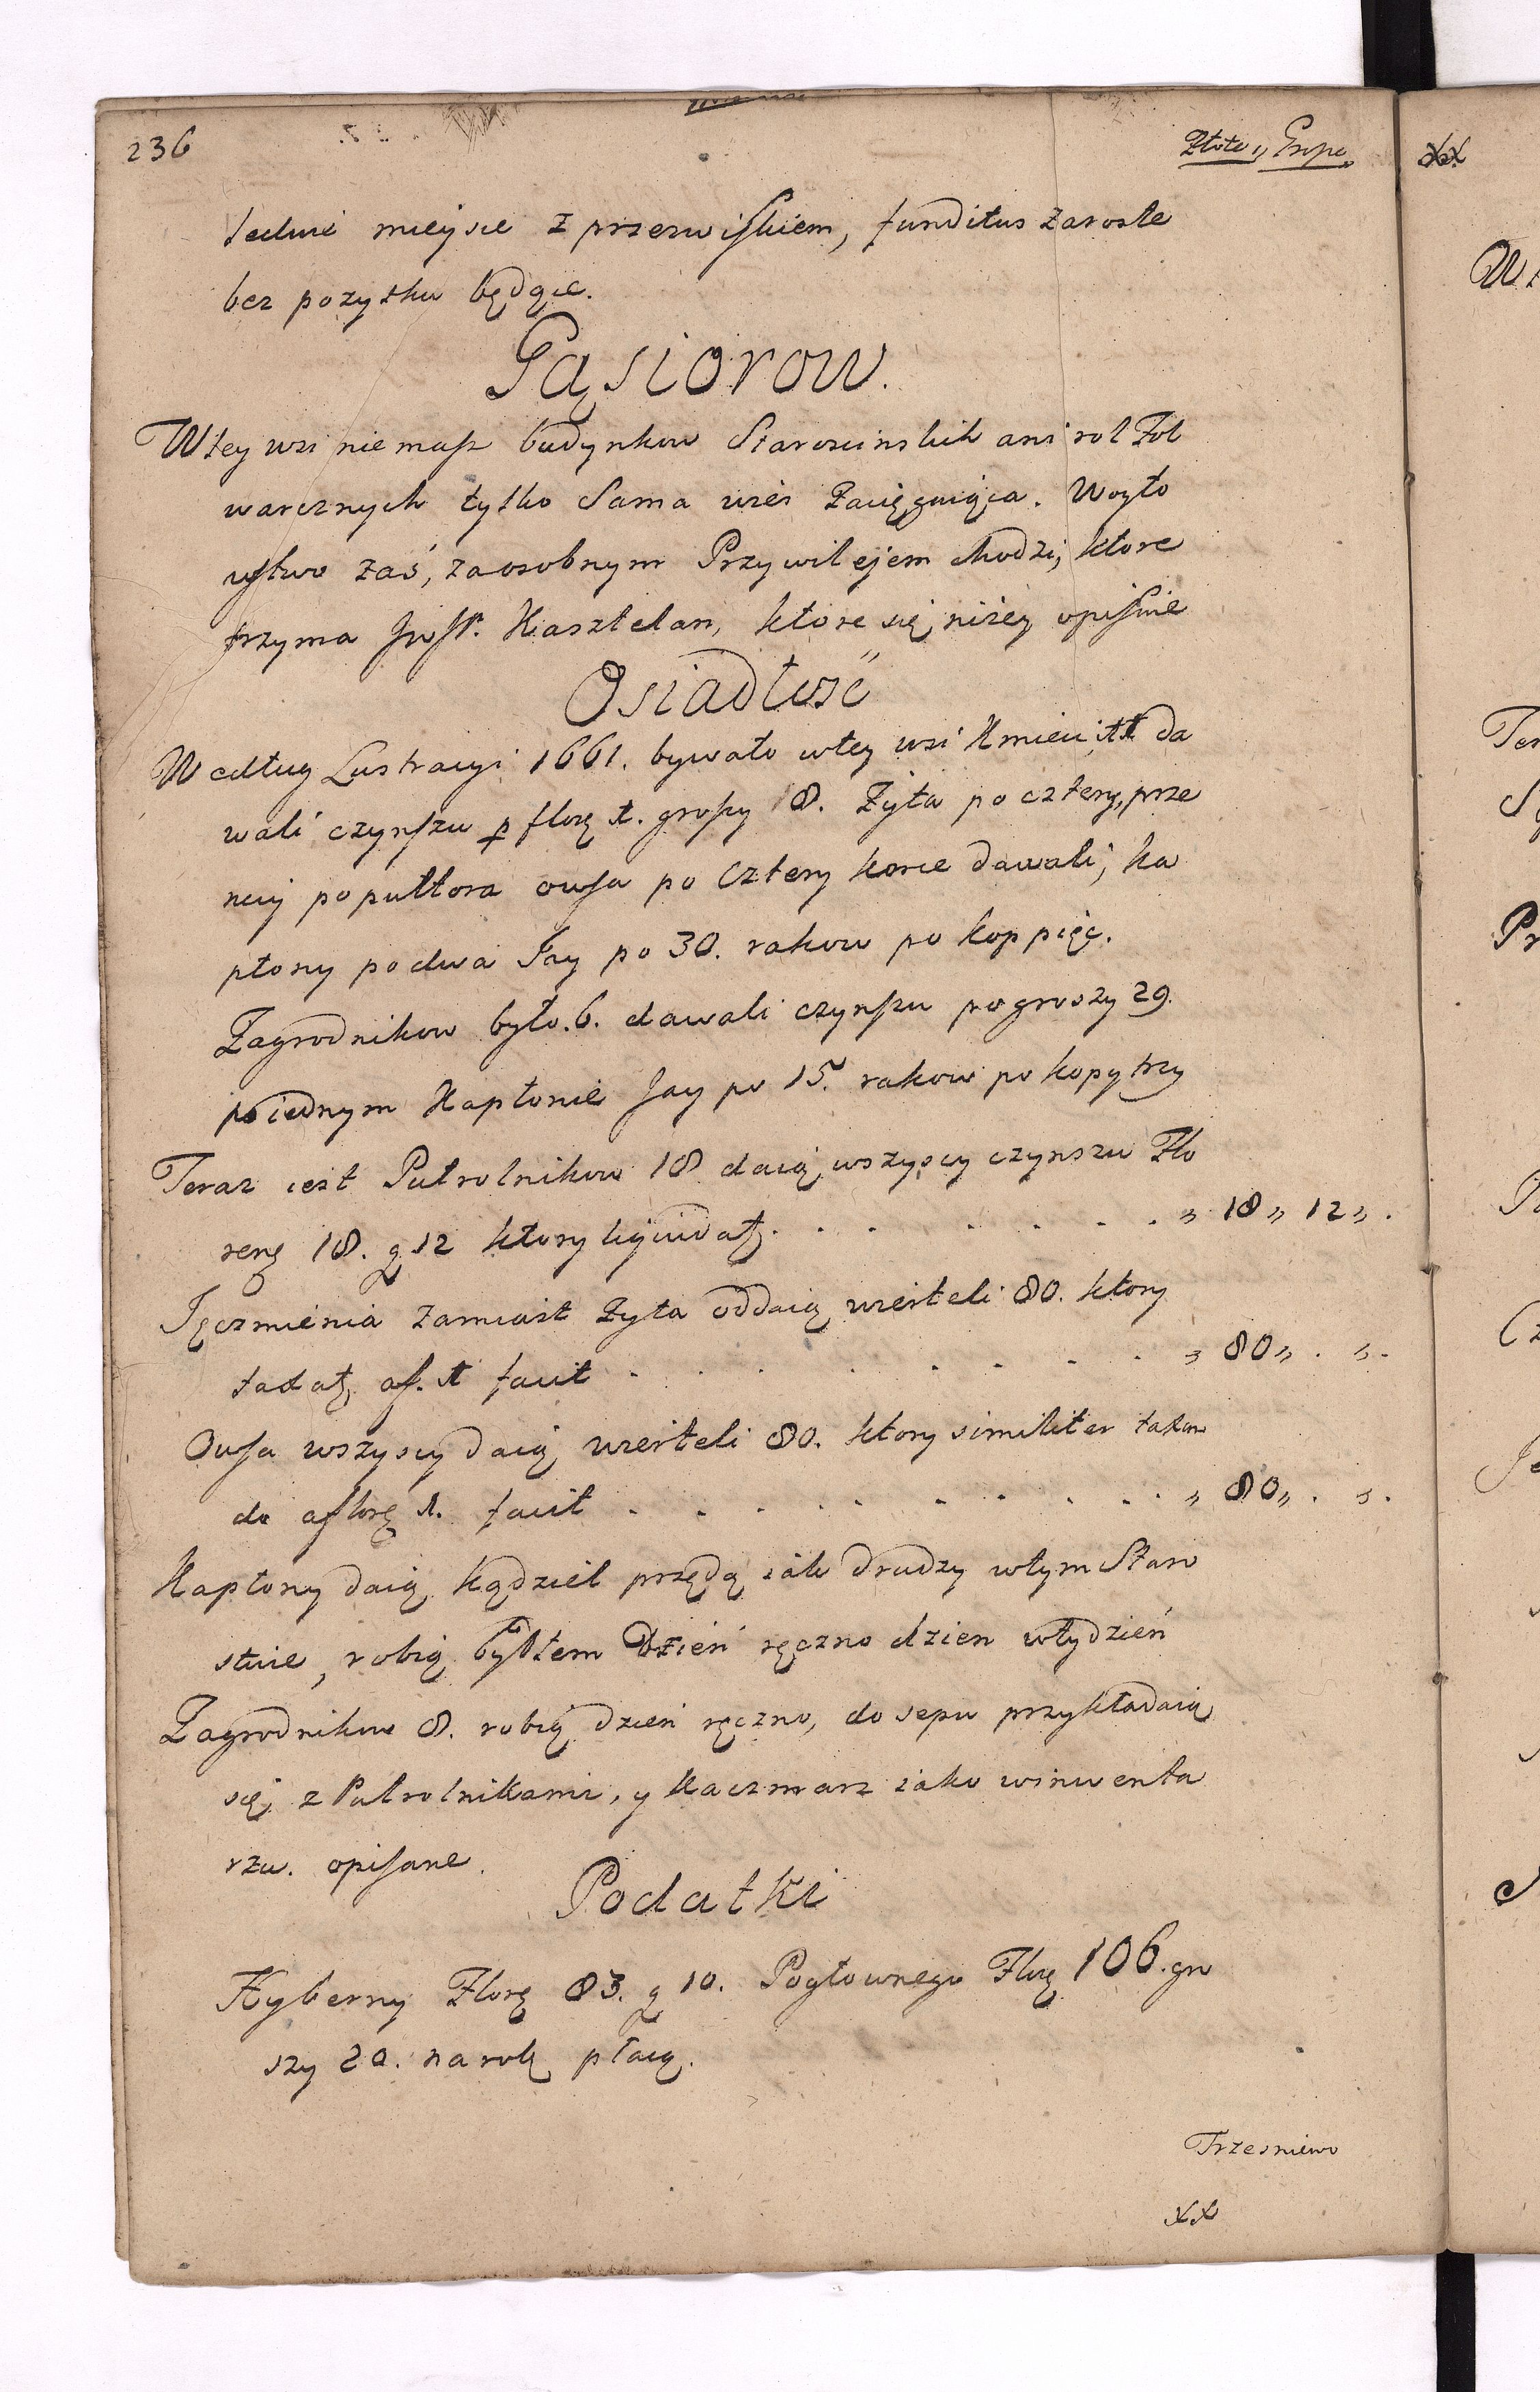 236
Złote „ Grosze
tedwie mieysce z przerwiskiem, funditus zarosłe
bez pozysku będące.
Gąsiorow.
W tey wsi niemasz budynkow Staroscinskich ani rol Fol
warcznych tylko Sama wies Zaciężniąca. Woyto
wstwo zaś, za osobnym Przywilejem chodzi, ktore
trzyma Kasztelan, ktore się niżey opisuie
Osiadłość
Według Lustracyi 1661. bywało w tey wsi Kmieci 11 da
wali czynszu p florę 1. groszy 18. Żyta po cztery, prze
nicy po pułtora owsa po cztery korce dawali, ka
płony po dwa Jay po 30. rakow po kop pięć.
Zagrodnikow było. 6. dawali czynszu po groszy 29.
po iednym Kapłonie Jay po 15. rakow po kopy trzy
Teraz iest Pułrolnikow 18 daią wszyscy czynszu Flo
renę 18. g 12 ktory „ 18 „ 12 „ .
Jęczmienia zamiast Żyta oddaią wierteli 80. ktory
af. 1 facit „ 80 „ . „ .
Owsa wszyscy daią wierteli 80. ktory similiter taxan
do a florę 1. facit „ 80 „ . „ .
Kapłony daią kądziel przędą iak drudzy w tym Staro
stwie, robią bydłem Dzień ręczno dzien w tydzień
Zagrodnikow 8. robią dzień ręczno, do sepu przykładaią
się z Pułrolnikami, y Kaczmarz iako w inwenta
rzu. opisane.
Podatki
Hyberny Florę 83. g 10. Pogłownego Florę 106. gro
szy 20. na rok płacą.
Trzesniewo
xx